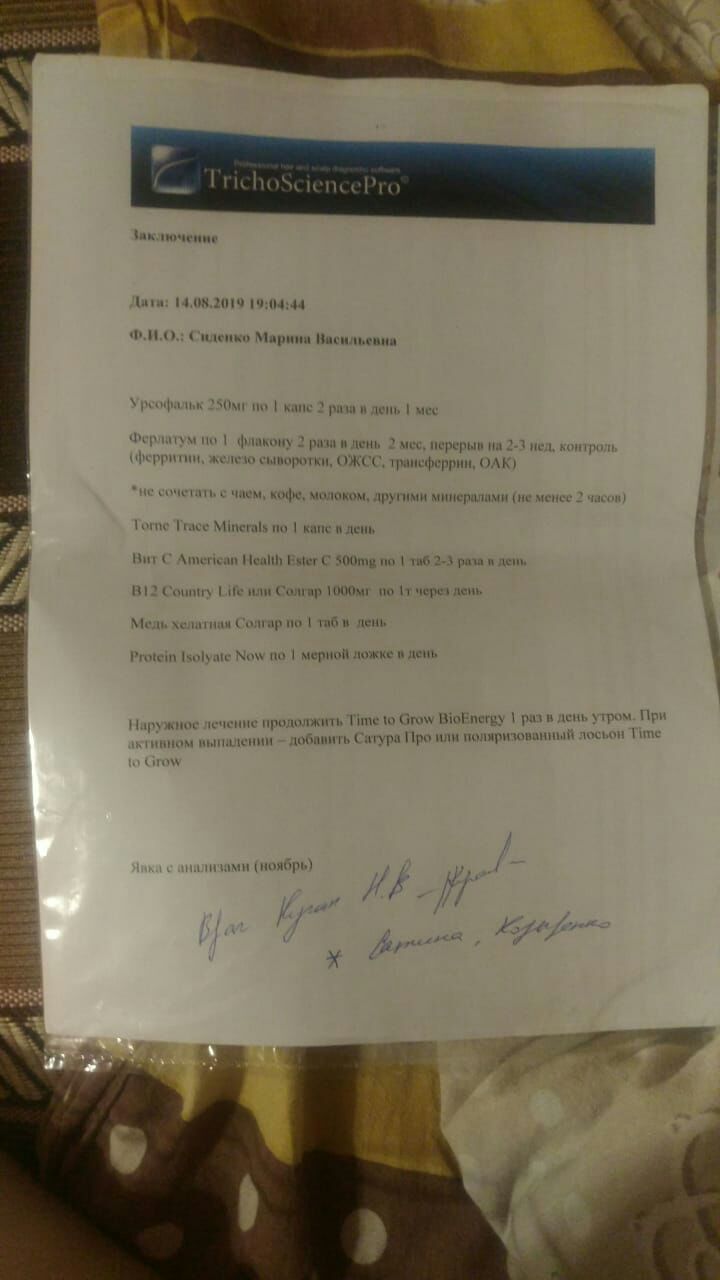 Professional hair and scalp diagnostic software
TrichoSciencePro©
Заключение
Дата: 14.08.2019 19:04:44
Ф.И.О.: Сиденко Марина Васильевна
Урсофальк 250мг по 1 капс 2 раза в день 1 мес
Ферлатум по 1 флакону 2 раза в день 2 мес, перерыв на 2-3 нед, контроль
(ферритин, железо сыворотки, ОЖСС, трансферрин, ОАК)
*не сочетать с чаем, кофе, молоком, другими минералами (не менее 2 часов)
Torne Trace Minerals по 1 капс в день
Вит С American Health Ester C 500mg по 1 таб 2-3 раза в день
B12 Country Life или Солгар 1000мг по 1т через день
Медь хелатная Солгар по 1 таб в день
Protein Isolyate Now по 1 мерной ложке в день
Наружное лечение продолжить Time to Grow BioEnergy 1 раз в день утром. При
активном выпадении – добавить Сатура Про или поляризованный лосьон Time
to Grow
Явка с анализами (ноябрь)
Врач Н.В
*